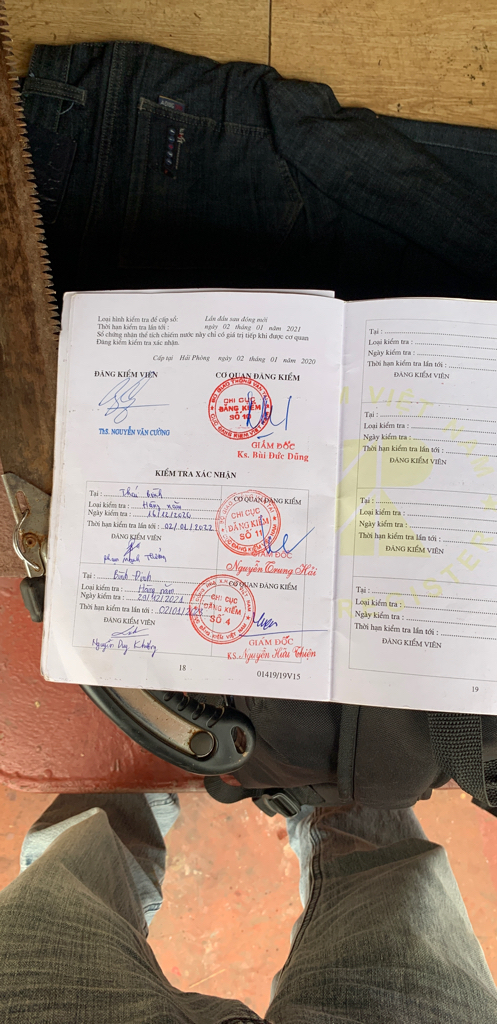 Loại hình kiểm tra để cấp sổ: Lần đầu sau đóng mới
Thời hạn kiểm tra lần tới : ngày 02 tháng 01 năm 2021
Sổ chứng nhận thể tích chiếm nước này chỉ có giá trị tiếp khi được cơ quan
Đăng kiểm kiểm tra xác nhận.
Cấp tại Hải Phòng ngày 02 tháng 01 năm 2020
ĐĂNG KIỂM VIÊN CƠ QUAN ĐĂNG KIỂM
CHI CỤC
ĐĂNG KIỂM
SỐ 10
GIÁM ĐỐC
ThS. NGUYỄN VĂN CƯỜNG
Ks. Bùi Đức Dũng
KIỂM TRA XÁC NHẬN
Tại : Thái Bình CƠ QUAN ĐĂNG KIỂM
Loại kiểm tra : Hàng năm
Ngày kiểm tra : 16/12/2020
Thời hạn kiểm tra lần tới : 02/01/2022
ĐĂNG KIỂM VIÊN
CHI CỤC
ĐĂNG KIỂM
SỐ 11
GIÁM ĐỐC
Phạm Mạnh
Nguyễn Trung Hải
Tại : Bình Định CƠ QUAN ĐĂNG KIỂM
Loại kiểm tra : Hàng năm
Ngày kiểm tra : 29/12/2021
Thời hạn kiểm tra lần tới : 02/01/
ĐĂNG KIỂM VIÊN
CHI CỤC
ĐĂNG KIỂM
SỐ 4
GIÁM ĐỐC
Nguyễn Duy Khương
KS. Nguyễn Hữu Thiện
18
01419/19V15
Tại :
Loại kiểm tra :
Ngày kiểm tra :
Thời hạn kiểm tra lần tới :
ĐĂNG KIỂM VIÊN
Tại :
Loại kiểm tra :
Ngày kiểm tra :
Thời hạn kiểm tra lần tới :
ĐĂNG KIỂM VIÊN
Tại :
Loại kiểm tra :
Ngày kiểm tra :
Thời hạn kiểm tra lần tới :
ĐĂNG KIỂM VIÊN
Tại :
Loại kiểm tra :
Ngày kiểm tra :
Thời hạn kiểm tra lần tới :
ĐĂNG KIỂM VIÊN
19